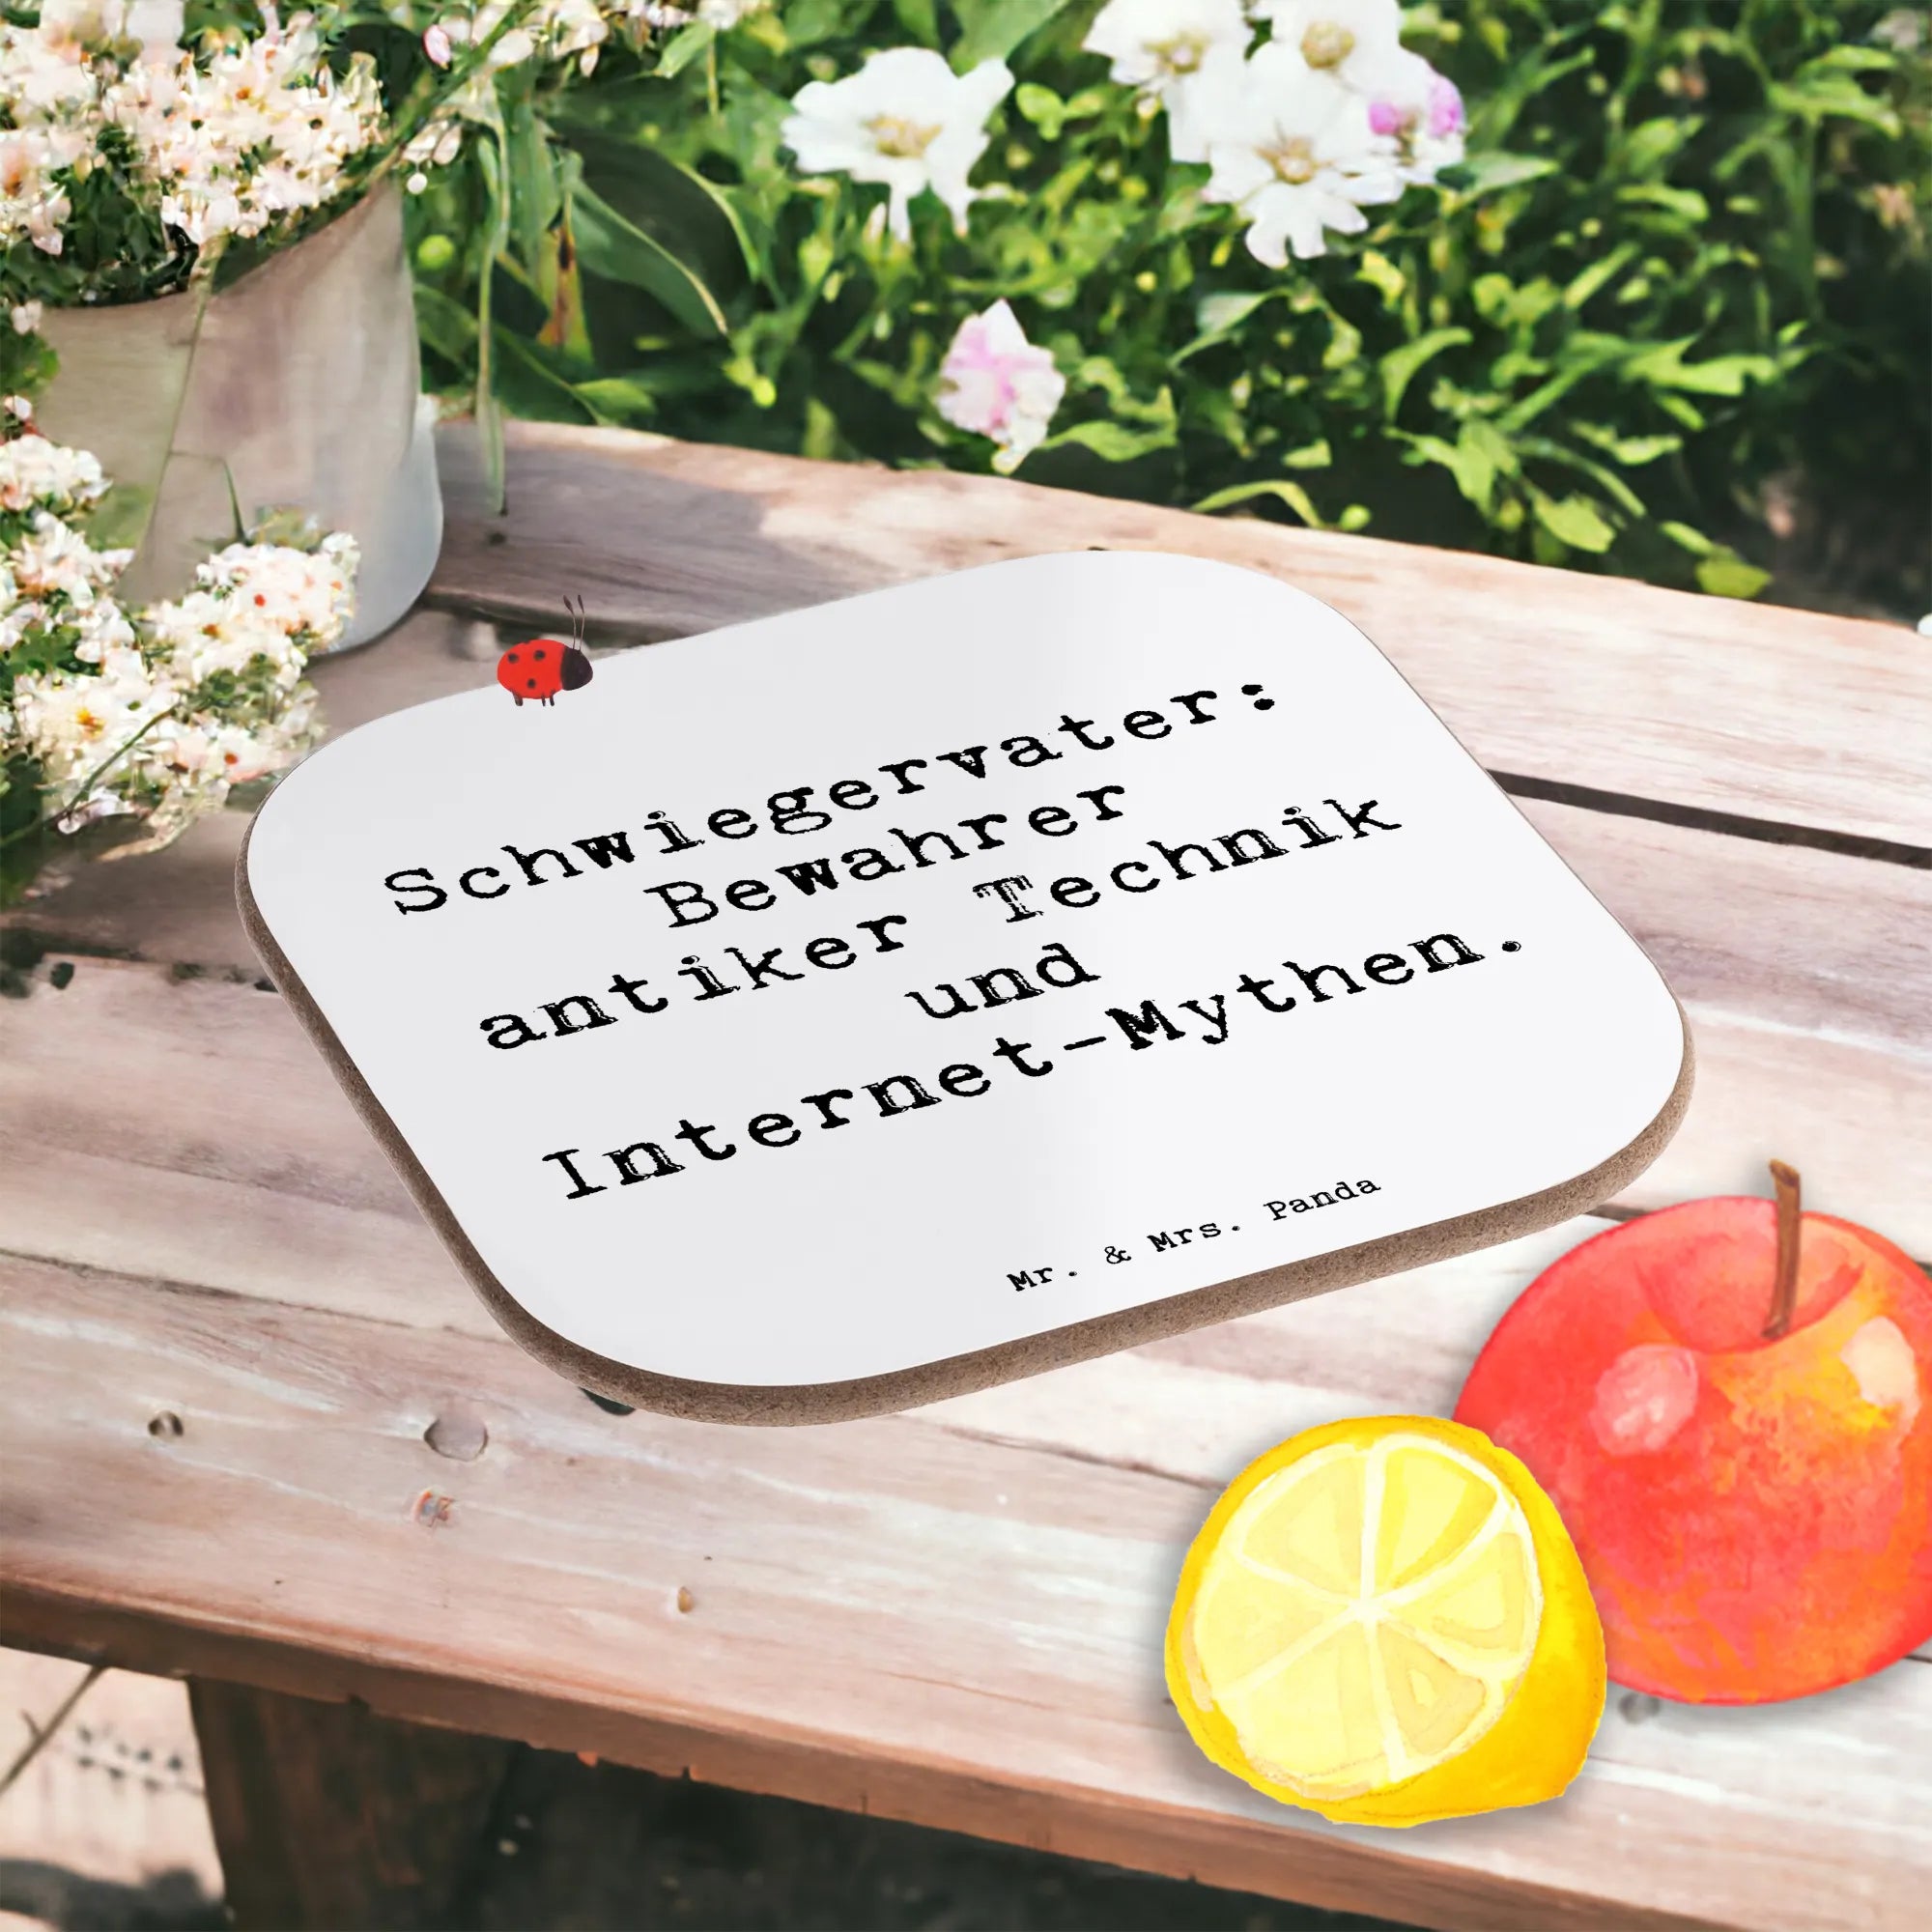 Schwiegervater:
Bewahrer
antiker Technik
und
Internet-Mythen.
Mr. & Mrs. Panda